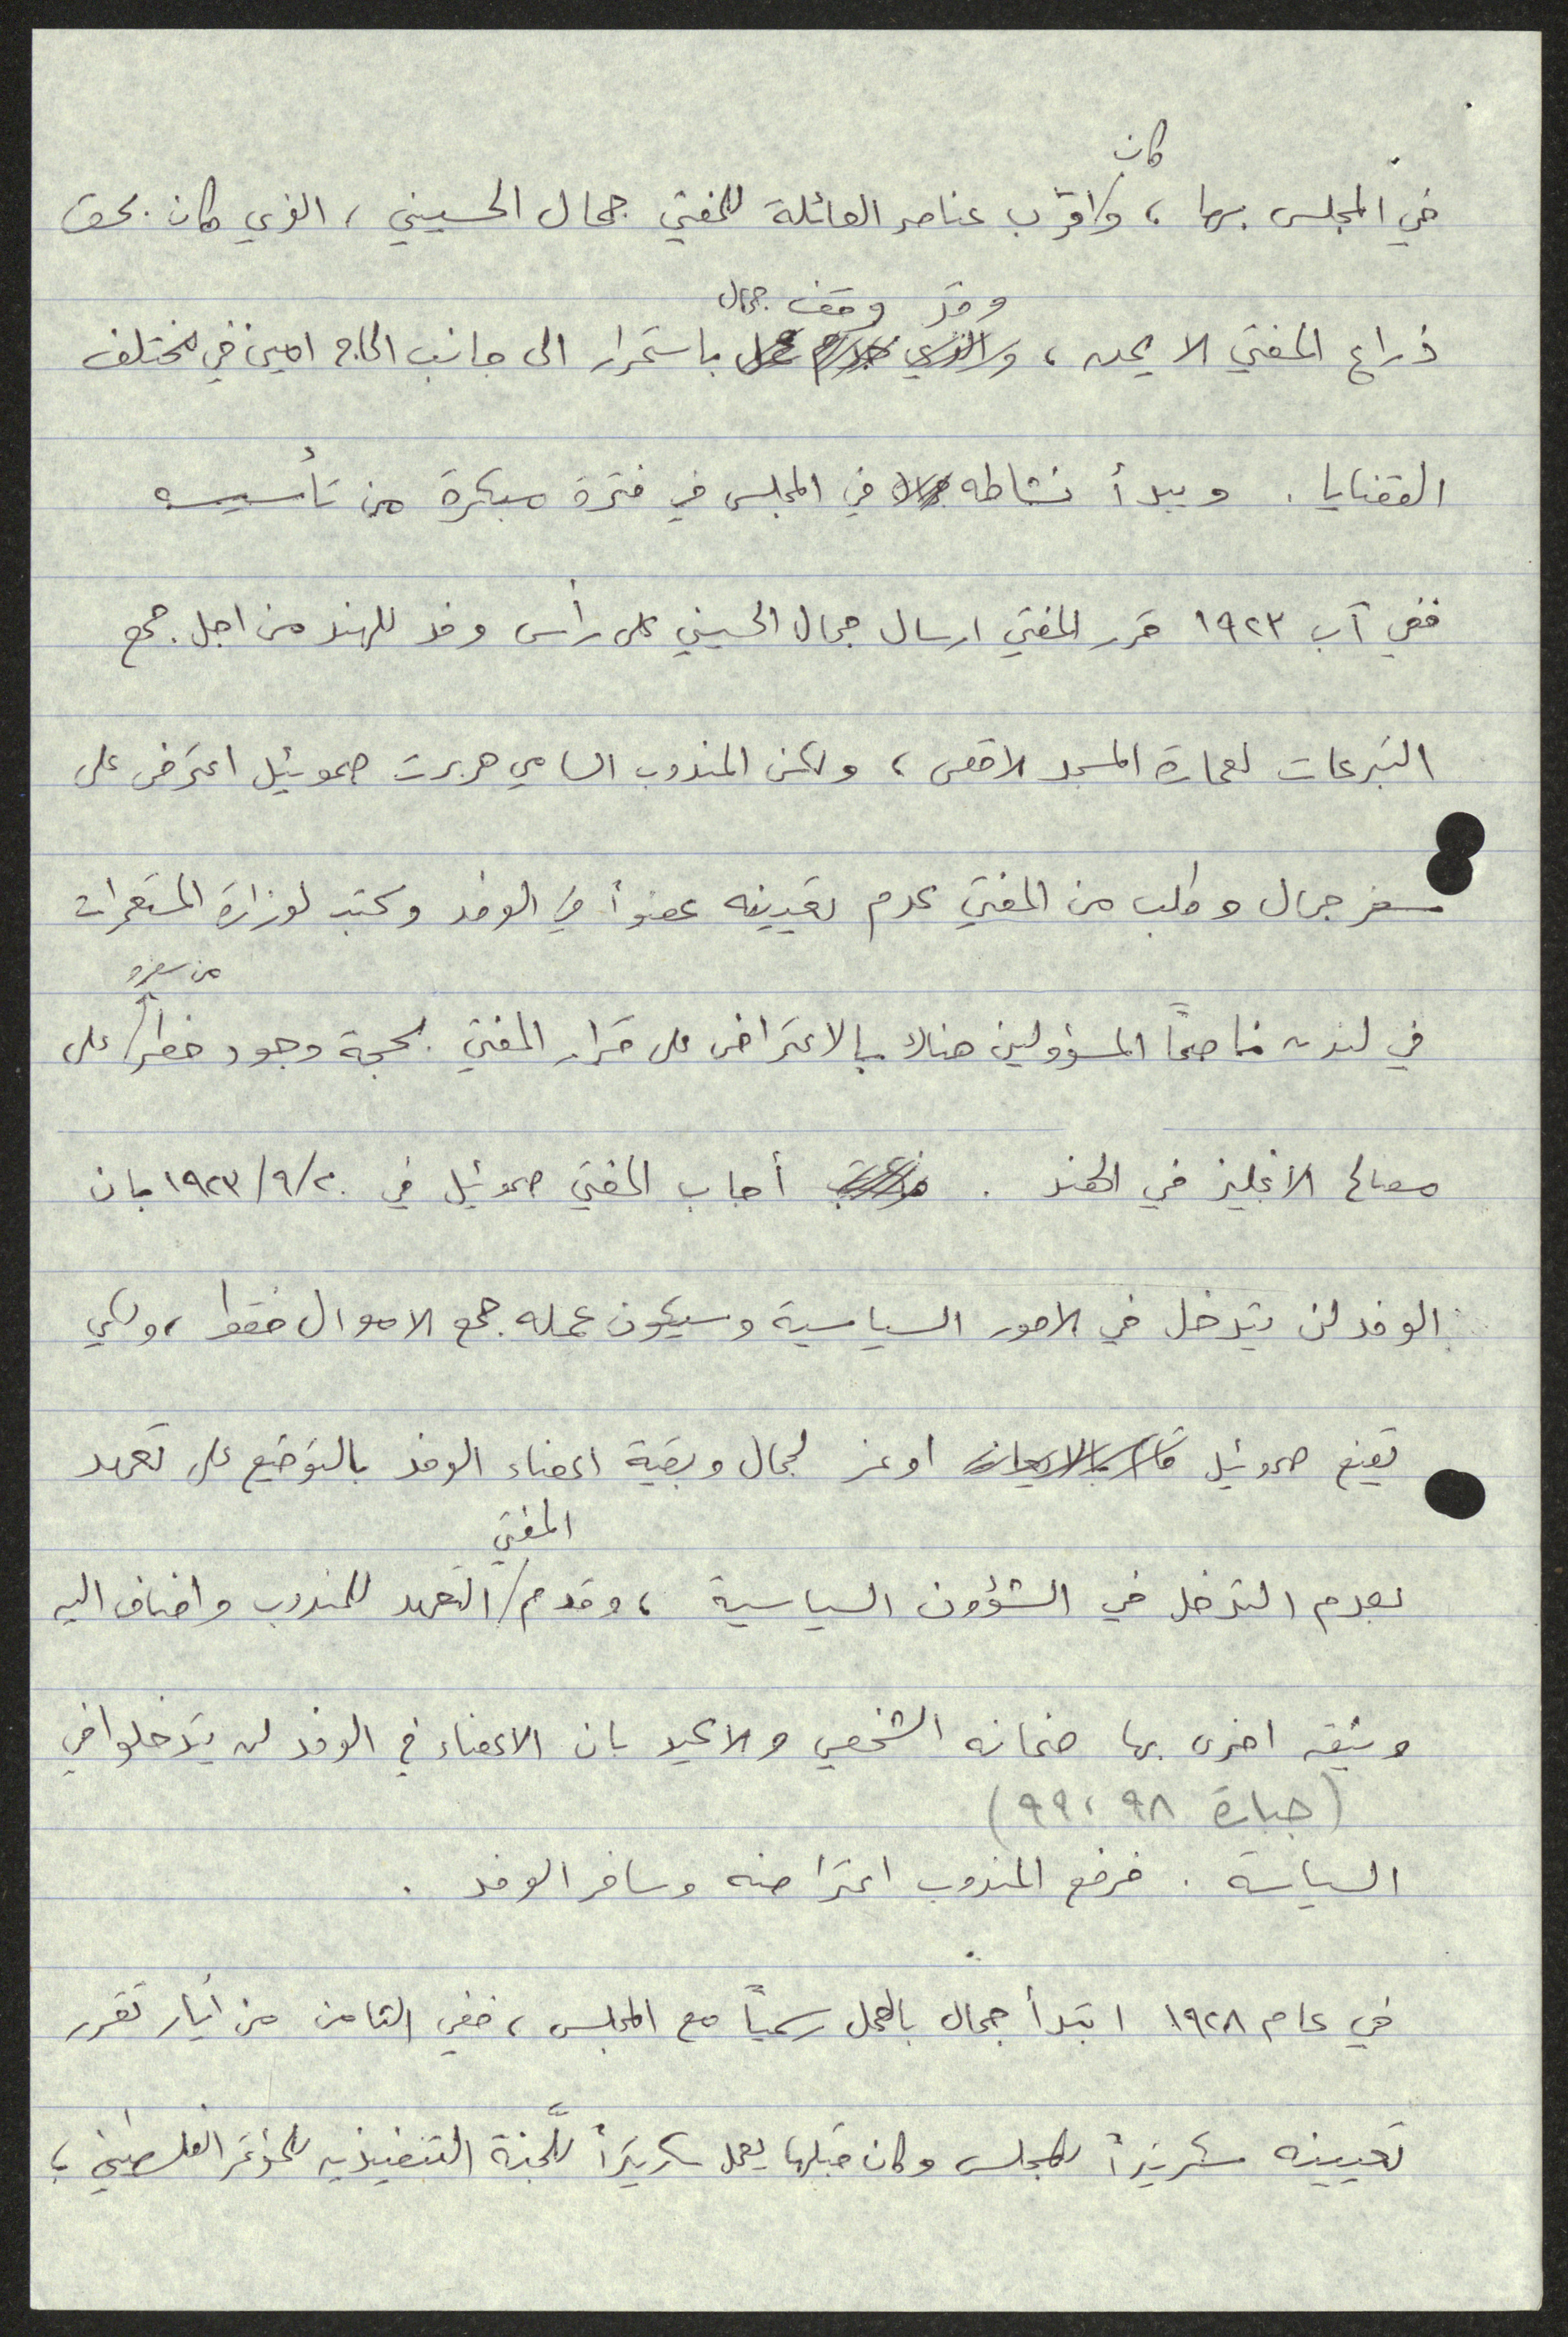 في المجلس بها ، وكان اقرب عناصر العائلة للمفتي جمال الحسيني ، الذي كان بحق
ذراع المفتي الايمن ، وقد وقف جمال باستمرار الى جانب الحاج امين في مختلف
القضايا . ويبدأ نشاطه في المجلس في فترة مبكرة من تأسيسه
ففي آب ١٩٢٣ قرر المفتي ارسال جمال الحسيني على رأس وفد للهند من اجل جمع
التبرعات لعمارة المسجد الاقصى ، ولكن المندوب السامي هربرت صموئيل اعترض على
سفر جمال وطلب من المفتي عدم تعيينه عضواً في الوفد وكتب لوزارة المستعمرات
في لندن ناصحاً المسؤولين هناك بالاعتراض على قرار المفتي بحجة وجود خطر من سفره على
مصالح الانجليز في الهند . أجاب المفتي صموئيل في ٢٠/٩/١٩٢٣ بان
الوفد لن يتدخل في الامور السياسية وسيكون عمله جمع الاموال فقط ، ولكي
يقنع صموئيل اوعز لجمال وبقية اعضاء الوفد بالتوقيع على تعهد
بعدم التدخل في الشؤون السياسية ، وقدم المفتي التعهد للمندوب واضاف اليه
وثيقه اخرى بها ضمانه الشخصي والاكيد بان الاعضاء في الوفد لن يتدخلوا في
(جبارة ٩٨ ، ٩٩)
السياسة . فرفع المندوب اعتراضه وسافر الوفد .
في عام ١٩٢٨ ابتدأ جمال بالعمل رسمياً مع المجلس ، ففي الثامن من أيار تقرر
تعيينه سكرتيراً للمجلس وكان قبلها يعمل سكرتيراً للّجنة التنفيذيه للمؤتمر الفلسطيني ،